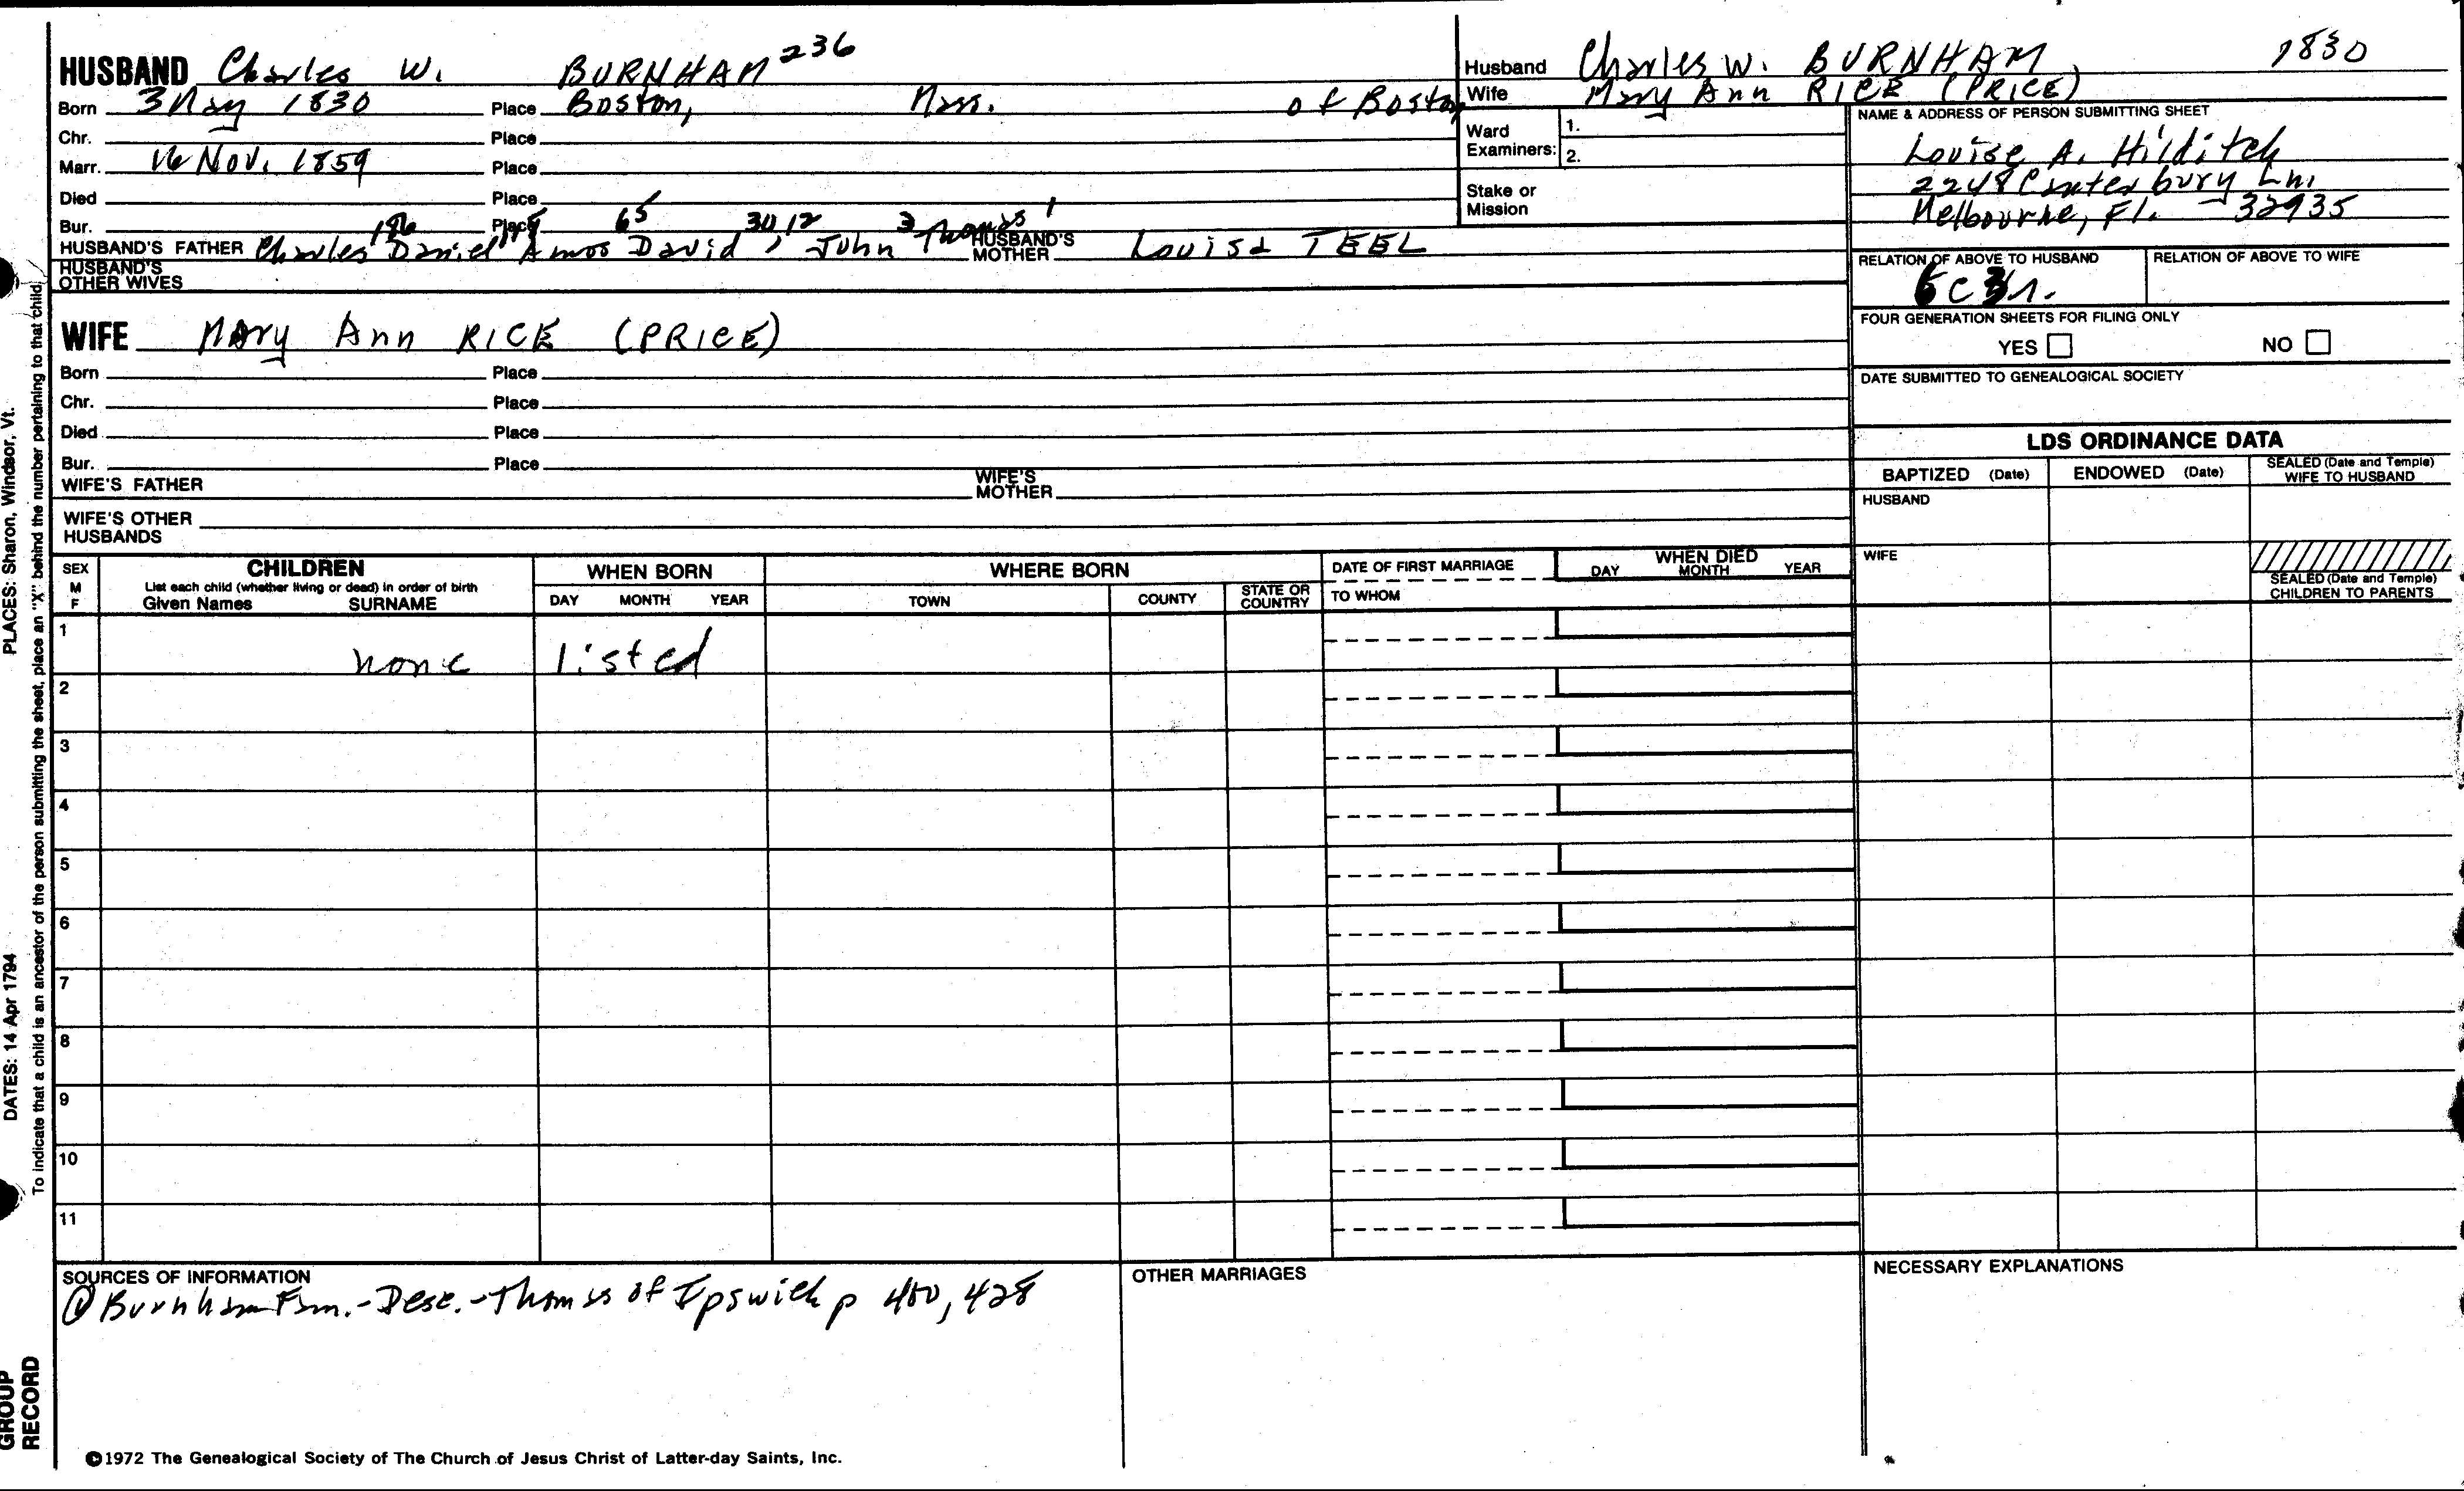 HUSBAND Charles W. BURNHAM 236
Born 3 May 1830 Place Boston, Mass. of Boston
Chr. Place
Marr. 16 Nov. 1859 Place
Died Place
Bur. Place
186 65 30, 12 3 1
HUSBAND'S FATHER Charles Daniel Amos David, John Thomas HUSBAND'S MOTHER Louisa TEEL
HUSBAND'S OTHER WIVES
WIFE Mary Ann RICE (PRICE)
Born Place
Chr. Place
Died Place
Bur. Place
WIFE'S FATHER WIFE'S MOTHER
WIFE'S OTHER HUSBANDS
Husband Charles W. BURNHAM 1830
Wife Mary Ann RICE (PRICE)
Ward Examiners: 1.
2.
Stake or Mission
NAME & ADDRESS OF PERSON SUBMITTING SHEET
Louise A. Hilditch
2248 Canterbury Ln.
Melbourne, Fl. 32935
RELATION OF ABOVE TO HUSBAND RELATION OF ABOVE TO WIFE
FOUR GENERATION SHEETS FOR FILING ONLY
YES NO
DATE SUBMITTED TO GENEALOGICAL SOCIETY
LDS ORDINANCE DATA
BAPTIZED (Date) ENDOWED (Date) SEALED (Date and Temple) WIFE TO HUSBAND
HUSBAND
WIFE
SEALED (Date and Temple) CHILDREN TO PARENTS
SEX M F
CHILDREN
List each child (whether living or dead) in order of birth
Given Names SURNAME
WHEN BORN
DAY MONTH YEAR
WHERE BORN
TOWN COUNTY STATE OR COUNTRY
DATE OF FIRST MARRIAGE
TO WHOM
WHEN DIED
DAY MONTH YEAR
1 none listed
2
3
4
5
6
7
8
9
10
11
SOURCES OF INFORMATION
① Burnham Fam. - Desc. - Thomas of Ipswich p 400, 428
OTHER MARRIAGES
NECESSARY EXPLANATIONS
©1972 The Genealogical Society of The Church of Jesus Christ of Latter-day Saints, Inc.
PLACES: Sharon, Windsor, Vt.
DATES: 14 Apr 1794
To indicate that a child is an ancestor of the person submitting the sheet, place an "X" behind the number pertaining to that child
GROUP
RECORD